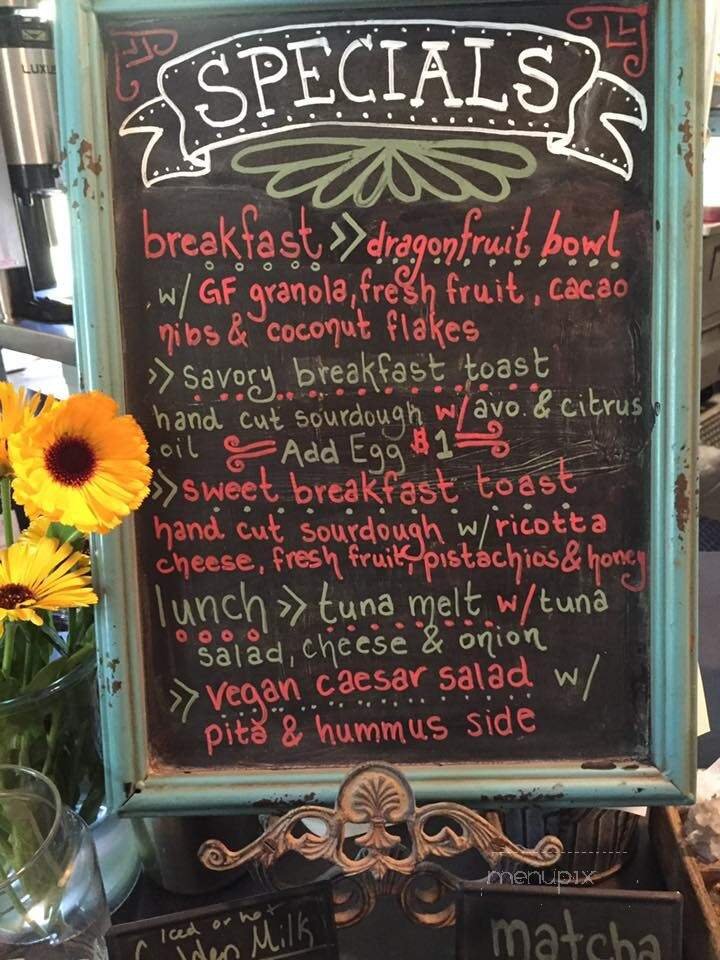 SPECIALS
breakfast >> dragonfruit bowl
w/ GF granola, fresh fruit, cacao
nibs & coconut flakes
>> savory breakfast toast
hand cut sourdough w/ avo & citrus
oil Add Egg $1
>> sweet breakfast toast
hand cut sourdough w/ ricotta
cheese, fresh fruit, pistachios & honey
lunch >> tuna melt w/ tuna
salad, cheese & onion
>> vegan caesar salad w/
pita & hummus side
menupix
Iced or hot
Golden Milk
matcha